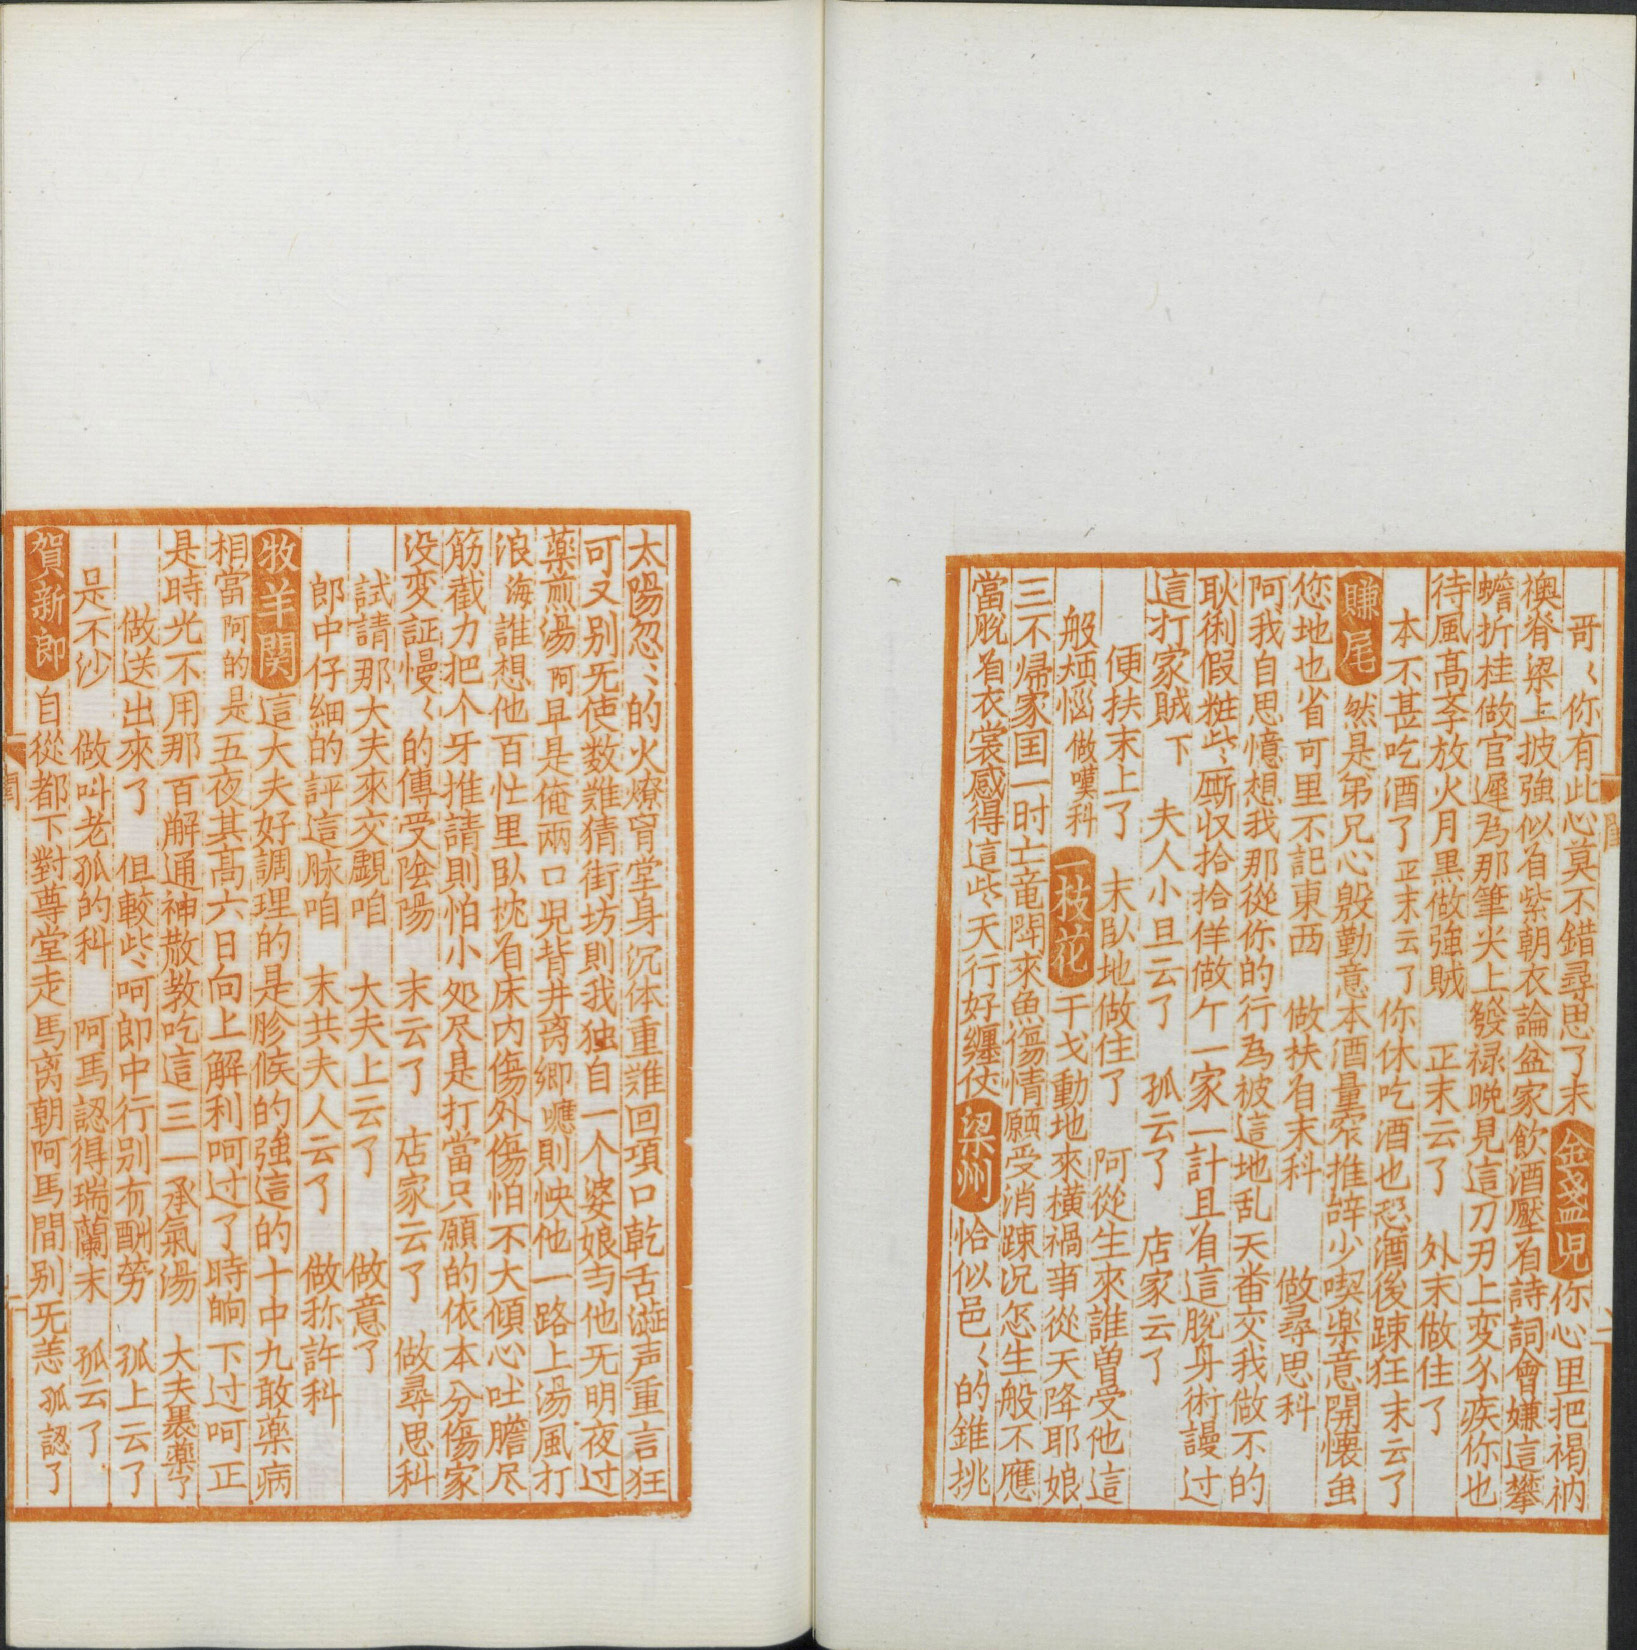 哥〻你有此心莫不錯尋思了末 金盞兒 你心里把褐衲
襖脊梁上披強似着紫朝衣論盆家飲酒壓着詩詞會嫌這攀
蟾折桂做官遲為那筆尖上發禄晚見這刀刃上变尒疾你也
待風高李放火月黑做強賊 正末云了 外末做住了
本不甚吃酒了 正末云了 你休吃酒也恐酒後踈狂 末云了
賺尾 然是弟兄心殷勤意本酒量窄推辞少喫楽意開懐虽
您地也省可里不記東西 做扶着末科 做尋思科
阿我自思憶想我那從你的行為被這地乱天番交我做不的
耿㑢假粧些厮収拾拾佯做个一家一計且着這脫身術謾过
這打家賊 下 夫人小旦云了 孤云了 店家云了
便扶末上了 末臥地做住了 阿從生來誰曽受他這
般煩惱 做嘆科 一枝花 干戈動地來横禍事從天降耶娘
三不帰家国一时亡竜閗來魚傷情願受消踈况怎生般不應
當脫着衣裳感得這些天行好纏仗 梁州 恰似邑〻的錐挑
太陽忽〻的火燎胷堂身沉体重難回項口乾舌澁声重言狂
可又别旡使数難猜街坊則我独自一个婆娘与他无明夜过
藥煎湯阿早是俺兩口兒背井离鄉嗯則怏他一路上湯風打
浪海誰想他百忙里臥枕着床内傷外傷怕不大傾心吐膽尽
筋截力把个牙推請則怕小処尽是打當只願的依本分傷家
没变証慢〻的傳受陰陽 末云了 店家云了 做尋思科
試請那大夫來交覷咱 大夫上云了 做意了
郎中仔細的評這脉咱 末共夫人云了 做称許科
牧羊関 這大夫好調理的是胗候的強這的十中九敢藥病
相當阿的是五夜其高六日向上解利呵过了時晌下过呵正
是時光不用那百解通神散教吃這三一承氣湯 大夫裹藥了
做送出來了 但較些呵郎中行别有酬勞 孤上云了
是不沙 做叫老孤的科 阿馬認得瑞蘭末 孤云了
賀新郎 自從都下對尊堂走馬离朝阿馬間别旡恙 孤認了